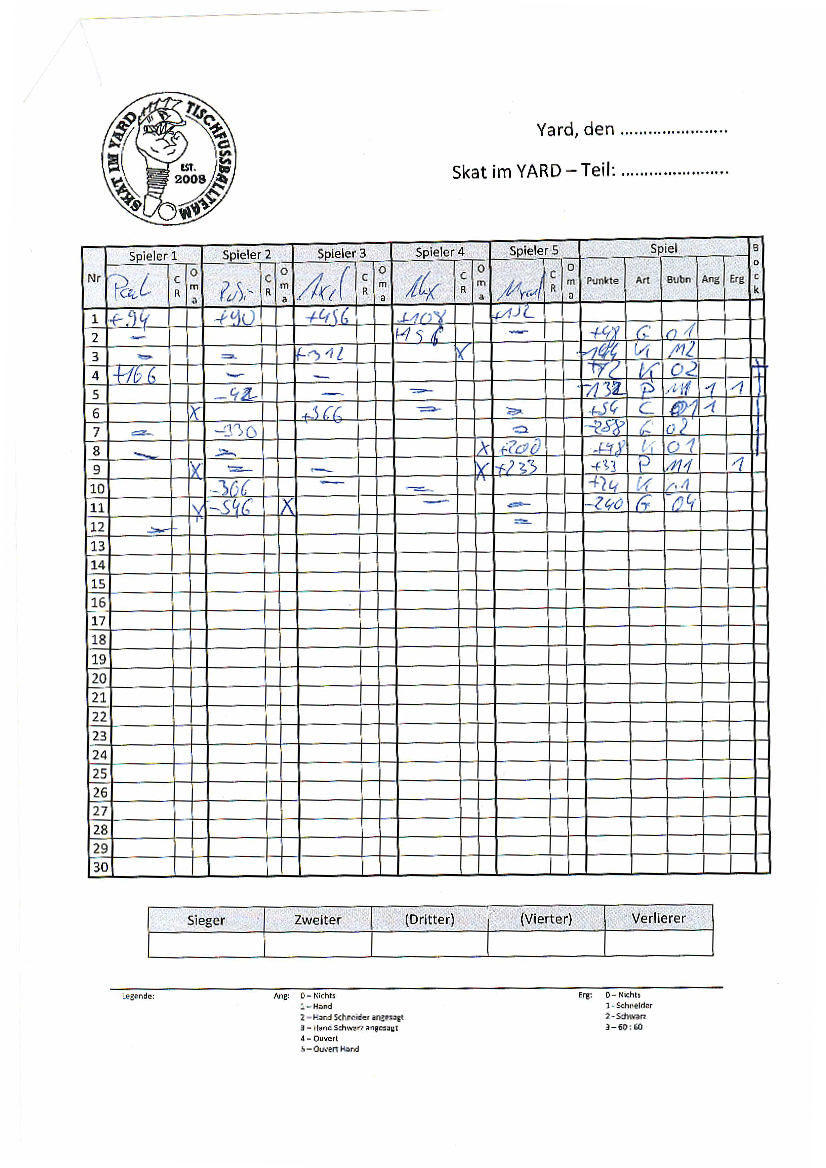 SKAT IM YARD
TISCHFUSSBALLTEAM
EST.
2008
Yard, den ........................
Skat im YARD – Teil: ........................
Spieler 1 Spieler 2 Spieler 3 Spieler 4 Spieler 5 Spiel Bock
Nr Paul CR Oma CR Oma Axel CR Oma Alex CR Oma CR Oma Punkte Art Bubn Ang Erg
1 +94 +90 +456 +108 +152
2 – +156 – +48 G 01
3 – – +312 X V1 M2
4 +166 – – +72 V1 02
5 – – -132 P M1 1 1
6 X +366 – – +54 C 1
7 – -330 – -288 G 02
8 – – X +200 +48 V1 01
9 X – – X +233 +33 P M1 1
10 -306 – – +24 V1 01
11 X -546 X – – -240 G 04
12 – –
13
14
15
16
17
18
19
20
21
22
23
24
25
26
27
28
29
30
Sieger Zweiter (Dritter) (Vierter) Verlierer
Legende: Ang: 0 – Nichts Erg: 0 – Nichts
1 – Hand 1 - Schneider
2 – Hand Schneider angesagt 2 - Schwarz
3 – Hand Schwarz angesagt 3 – 60 : 60
4 – Ouvert
5 – Ouvert Hand